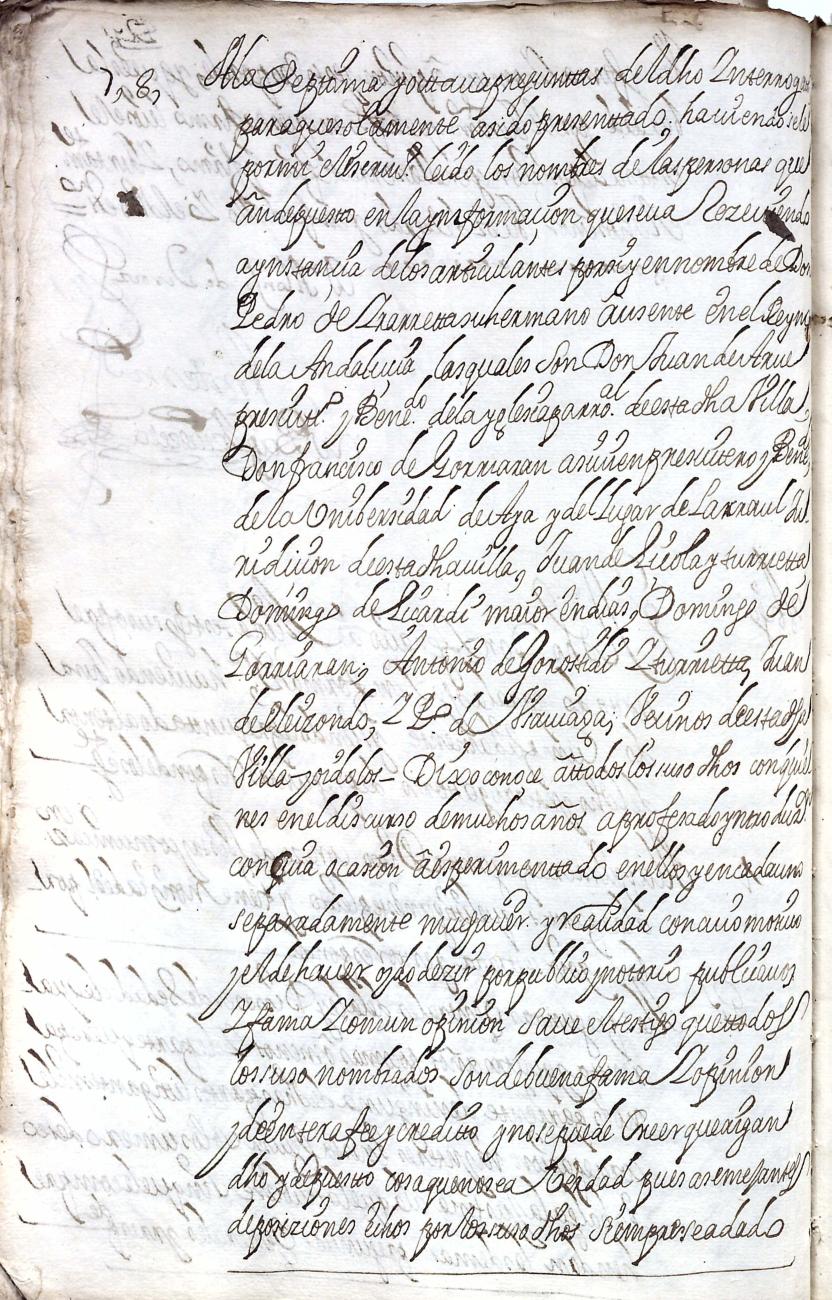 7, 8,
A la Septima y octtaua preguntas del dho Interroga
para que solamente asido presenttado. hauiendosele
por mi el Escriu.º leido los nombres de las personas que
an depuesto en la ynformaçion que se ua Rezeuiendo
a ynstançia de los articulantes por si y en nombre de Don
Pedro de Ararretta su hermano ausente en el Reyno
de la Andaluçia, las quales son Don Juan de
presuit.º y Bene.do dela yglesia parro.al de esta dha Villa,
Don francisco de Gorriaran asiuien presuitero y Bene.do
de la Uniberssidad de Aya y del Lugar de Larraul Ju
ridiçion de esta dha uilla, Juan de Liçola yturrietta
Domingo de Liçardi maior en dias, Domingo de
Gorriaran, Antonio de Gorostidi Yturrietta, Juan
de Eleizondo, Y P.º de Veçinos de esta dha
Villa y oidolos Dixo conoçe a ttodos los suso dhos con quie
nes en el discurso de muchos años a profesado yntroduçion
con cuia ocasion a esperimenttado en ellos y en cada uno
separadamente mucha uer. y realidad con cuio motiuo
y el de hauer oydo dezir por publico y notorio publica uos
Y fama Y comun opinion saue el testigo que ttodos
los suso nombrados son de buena fama Y opinion
y de entera fee y creditto y no se puede Creer que aigan
dho y depuesto cosa que no sea Verdad pues a semejantes
deposiziones echos por los suso dhos siempre se a dado